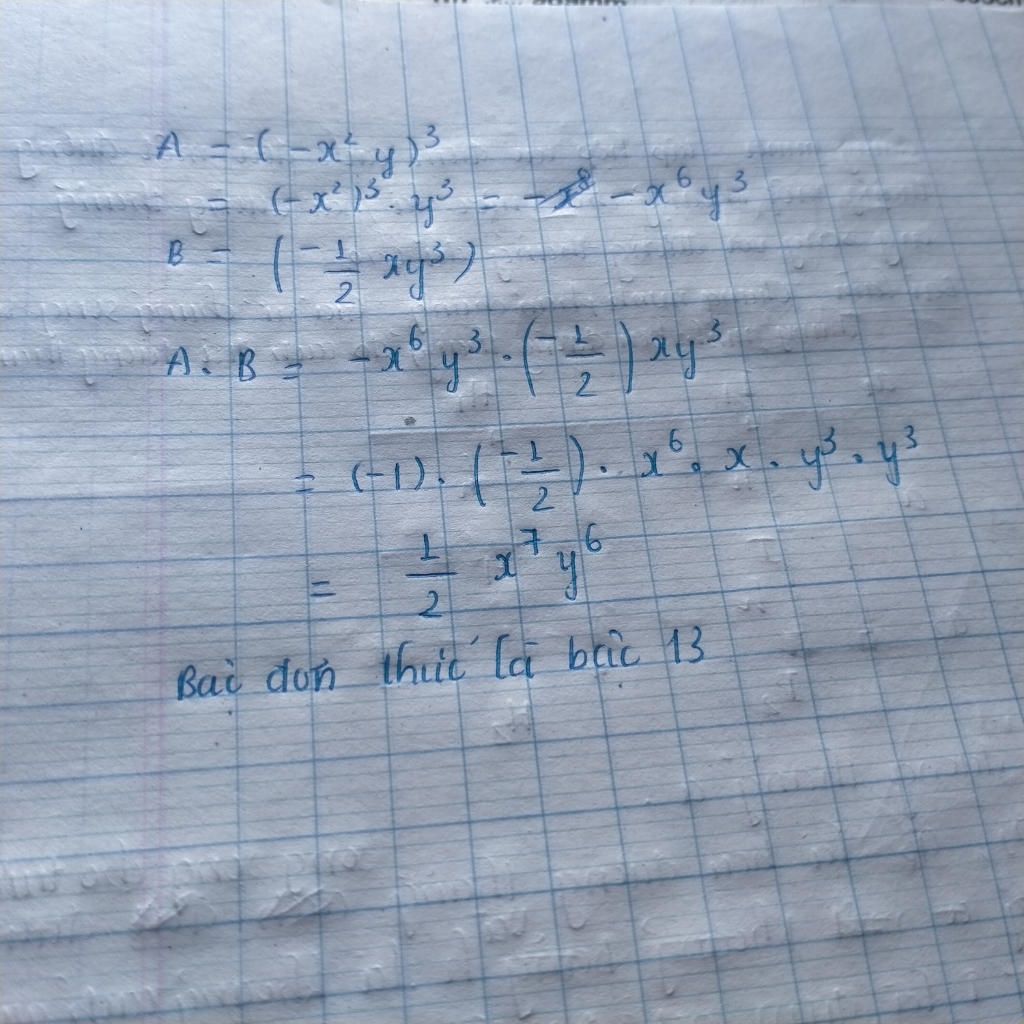 A = (-x² y)³
= (-x²)³ . y³ = -x⁸ -x⁶y³
B = (-1/2 xy³)
A . B = -x⁶y³ . (-1/2) xy³
= (-1) . (-1/2) . x⁶ . x . y³ . y³
= 1/2 x⁷y⁶
Bậc đơn thức là bậc 13